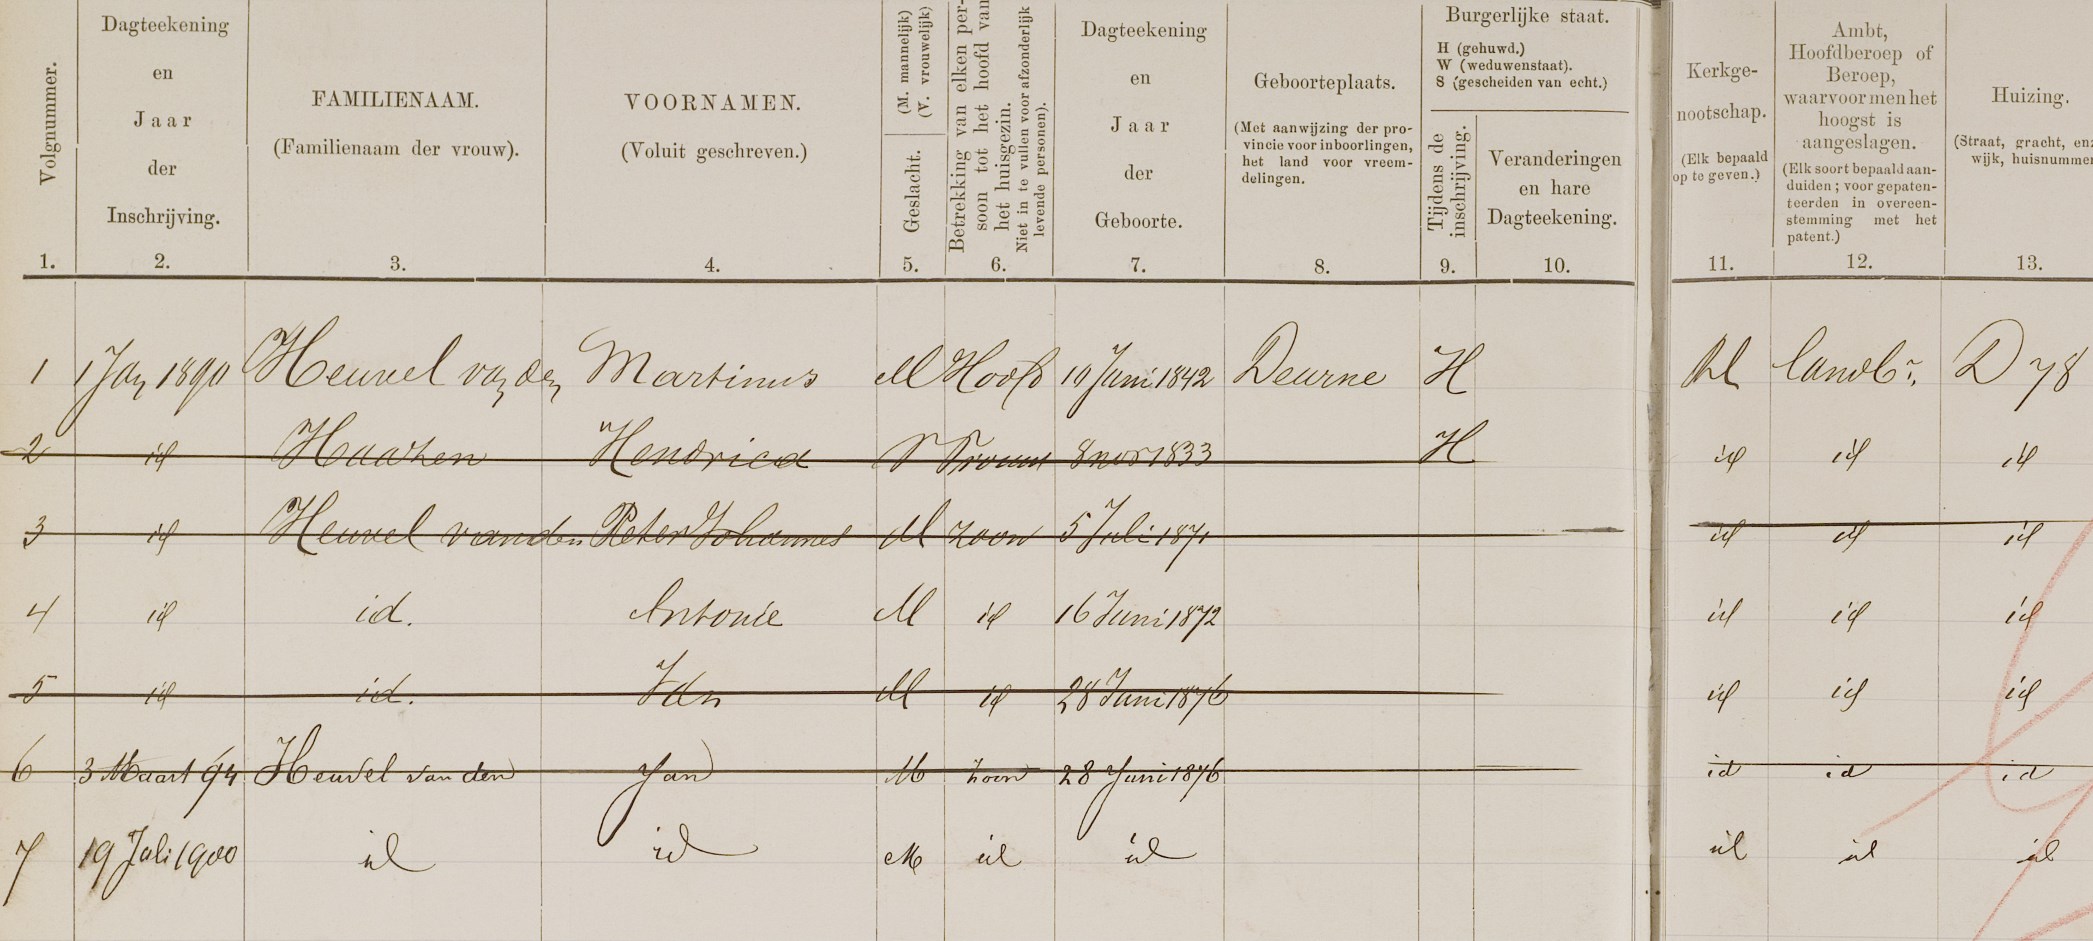 Volgnummer.
1.
Dagteekening
en
Jaar
der
Inschrijving.
2.
FAMILIENAAM.
(Familienaam der vrouw).
3.
VOORNAMEN.
(Voluit geschreven.)
4.
(M. mannelijk)
(V. vrouwelijk)
Geslacht.
5.
Betrekking van elken per-
soon tot het hoofd van
het huisgezin.
Niet in te vullen voor afzonderlijk
levende personen).
6.
Dagteekening
en
Jaar
der
Geboorte.
7.
Geboorteplaats.
(Met aanwijzing der pro-
vincie voor inboorlingen,
het land voor vreem-
delingen.
8.
Burgerlijke staat.
H (gehuwd.)
W (weduwenstaat).
S (gescheiden van echt.)
Tijdens de
inschrijving.
9.
Veranderingen
en hare
Dagteekening.
10.
Kerkge-
nootschap.
(Elk bepaald
op te geven.)
11.
Ambt,
Hoofdberoep of
Beroep,
waarvoor men het
hoogst is
aangeslagen.
(Elk soort bepaald aan-
duiden; voor gepaten-
teerden in overeen-
stemming met het
patent.)
12.
Huizing.
(Straat, gracht, enz
wijk, huisnummer
13.
1 1 Jan 1890 Heuvel van den Martinus M Hoofd 10 Juni 1842 Deurne H RC landbr. D 78
2 id Hendrica Vrouw 8 nov 1833 H id id id
3 id Heuvel van den Peter Johannes M zoon 5 Juli 1871 id id id
4 id id. Antonie M id 16 Juni 1872 id id id
5 id id. Jan M id 28 Juni 1876 id id id
6 3 Maart 94 Heuvel van den Jan M zoon 28 Juni 1876 id id id
7 19 Juli 1900 id id M id id id id id